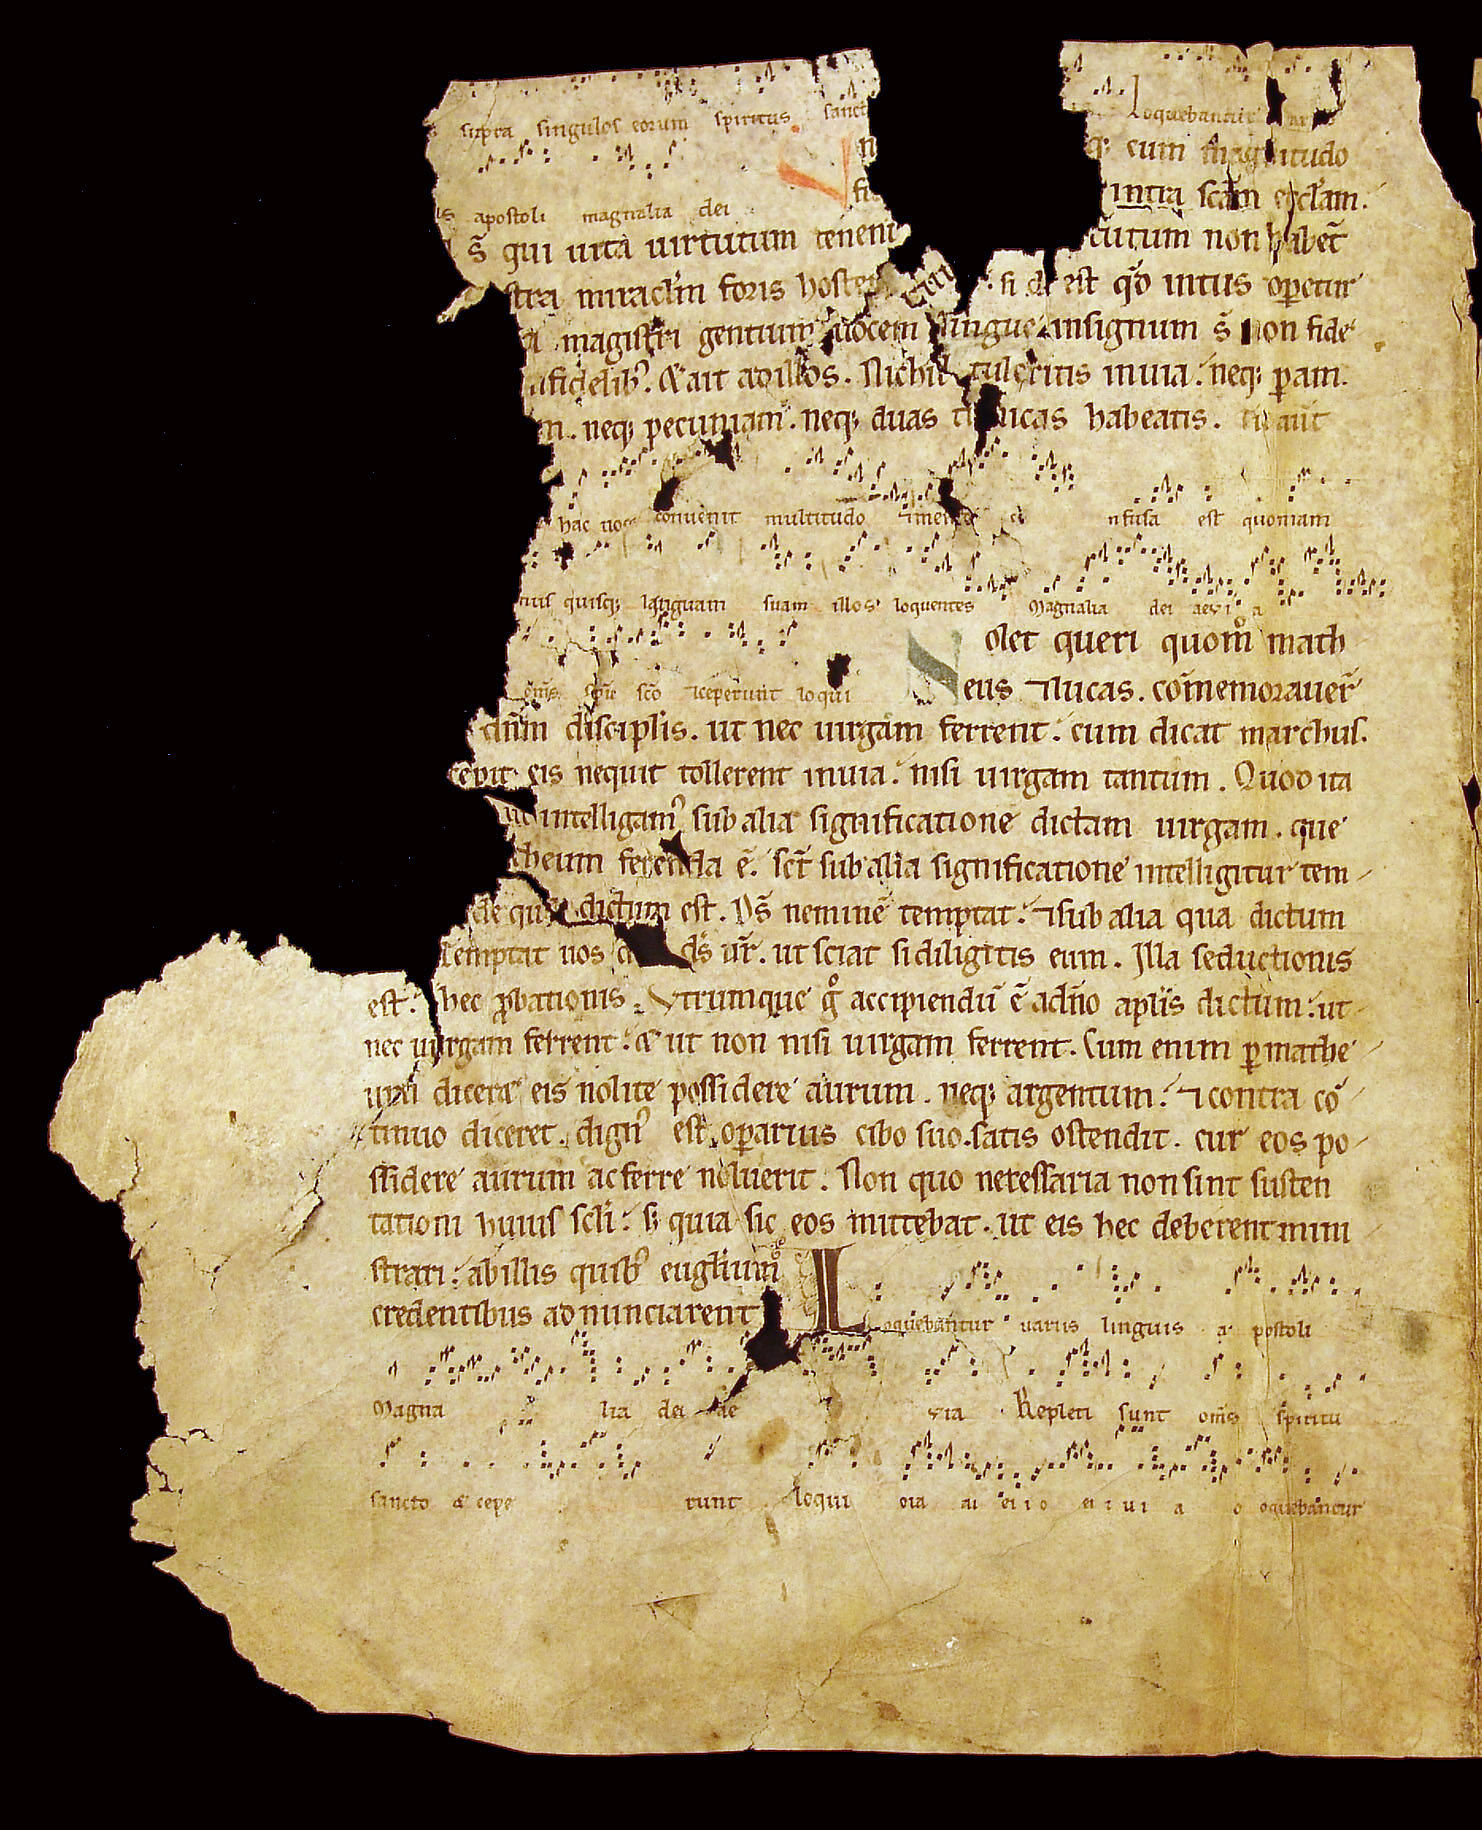 supra singulos eorum spiritus sanct
Loquebantur
q; cum magnitudo
intra scām eccl'am.
is apostoli magnalia dei
s̄ qui uitā uirtutum tenent
tutum non habet̄
stra miracl'm foris hostend
si d est q̊d intus op̄etur
magistri gentium uocem lingue insignum s̄ non fide
nfidelib'. & ait ad illos. Nichil tuleritis inuia. neq; p̄am.
m. neq; pecuniam. neq; duas tunicas habeatis. tū aut̄
hac uoce conuenit multitudo ⁊ mente co nfusa est quoniam
nus quisq; linguam suam illos loquentes Magnalia dei aevia
Nolet queri quom̊ math
om̄s sp̄u sc̄o ⁊ceperunt loqui
eus ⁊lucas. com̄emorauer̄
dn̄m discipl'is. ut nec uirgam ferrent. cum dicat marchus.
cepit eis nequit tollerent inuia. nisi uirgam tantum. Quod ita
intelligam' sub alia significatione dictam uirgam. que
theum ferenda ē. sct̄ sub alia significatione intelligitur tem
de qua dictum est. Ds̄ neminē temptat. ⁊sub alia qua dictum
Temptat uos d ds̄ ur̄. ut sciat si diligitis eum. Illa seductionis
est. hec p̄bationis. Vtrumque g̊ accipiendū ē adn̄o apl'is dictum. ut
nec uirgam ferrent. & ut non nisi uirgam ferrent. Cum enim p̄ mathe
um diceret eis nolite possidere aurum. neq; argentum. ⁊ contra cō
tinuo diceret. dign' est op̄arius cibo suo. satis ostendit. cur eos po
ssidere aurum ac ferre noluerit. Non quo necessaria non sint susten
tationi huius scl'i. s; quia sic eos mittebat. ut eis hec deberent mini
strari. abillis quib' eugl'ium
credentibus adnunciarent
Loquebantur uariis linguis a postoli
Magna lia dei ae via Repleti sunt om̄s spiritu
sancto & cepe runt loqui oia
oquebantur